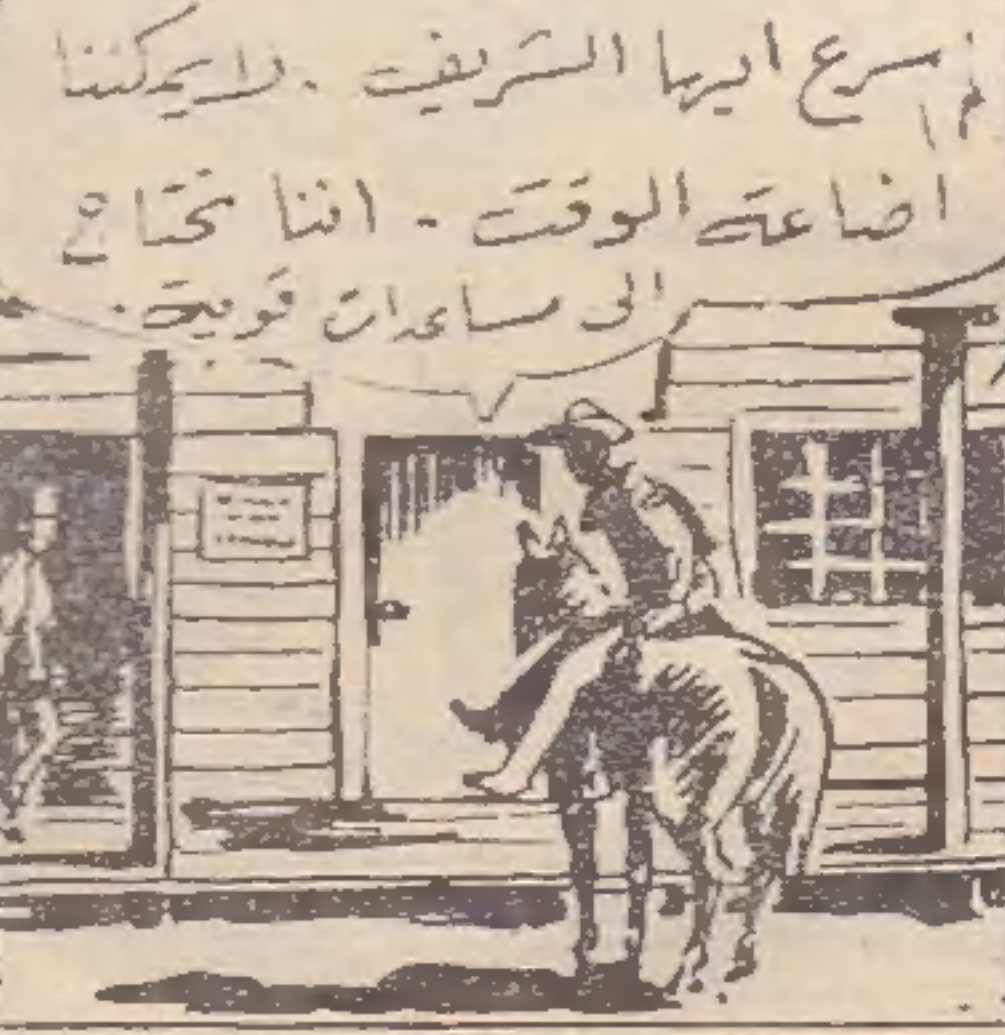 اسرع ايها الشريف . لا يمكننا
اضاعة الوقت . اننا نحتاج
الى مساعدات قوية .